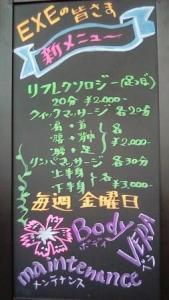 EXEの皆さま
新メニュー
リフレクソロジー(足つぼ)
20分 ¥2,000-
クイックマッサージ 各20分
・肩・首
・腰・背中
・腰・足
各
¥2,000-
リンパマッサージ 各30分
・上半身
・下半身
各
¥3,000-
毎週 金曜日
Body
ボディ
VERA
ベラ
maintenance
メンテナンス